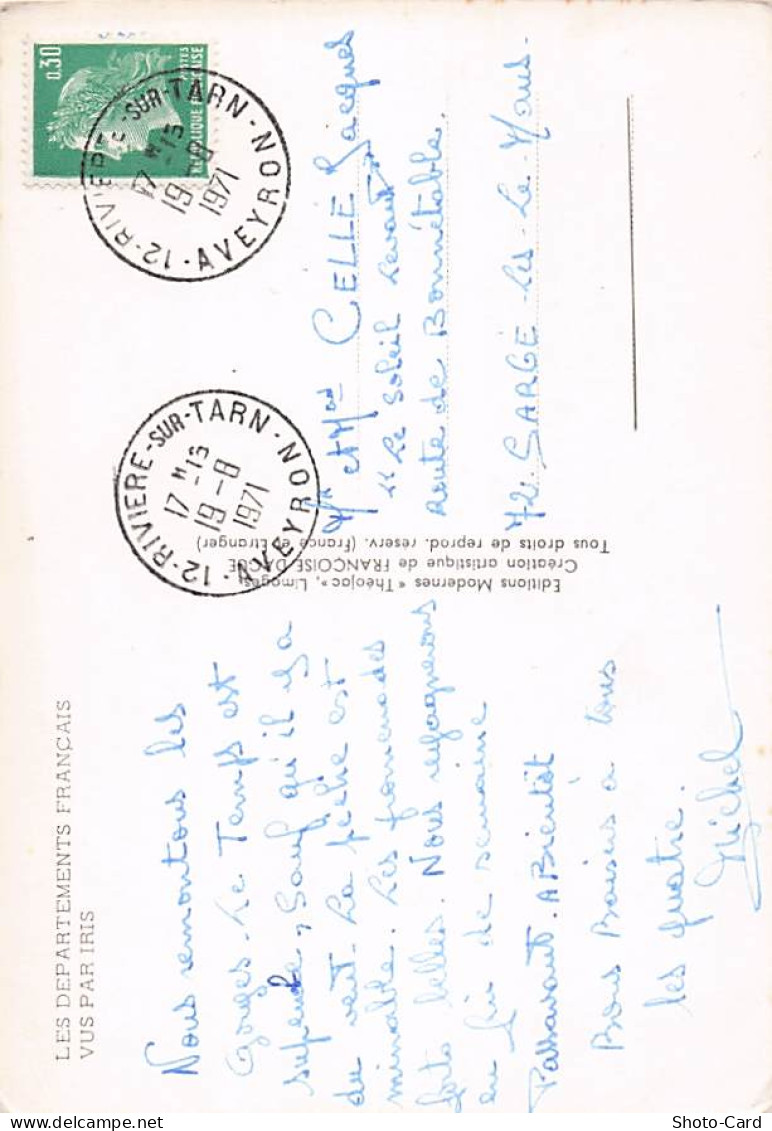 LES DEPARTEMENTS FRANÇAIS
VUS PAR IRIS
Nous remontons les
Gorges. Le Temps est
superbe, Sauf qu'il y a
du vent. La pêche est
minable. Les promenades
forts belles. Nous regagnerons
en fin de semaine
Passavant. A Bientôt
Bons Baisers à tous
les quatre.
Michel
Editions Modernes « Théojac », Limoges
Création artistique de FRANÇOISE DAGUE
Tous droits de reprod. réserv. (France et Etranger)
0,30
REPUBLIQUE FRANÇAISE
POSTES
12-RIVIERE-SUR-TARN
17 H 15
19-8
1971
AVEYRON
12-RIVIERE-SUR-TARN
17 H 15
19-8
1971
AVEYRON
Mr et Mad CELLE Jacques
"Le Soleil Levant"
Route de Bonnétable.
72. SARGÉ-les-Le Mans.
Photo-Card